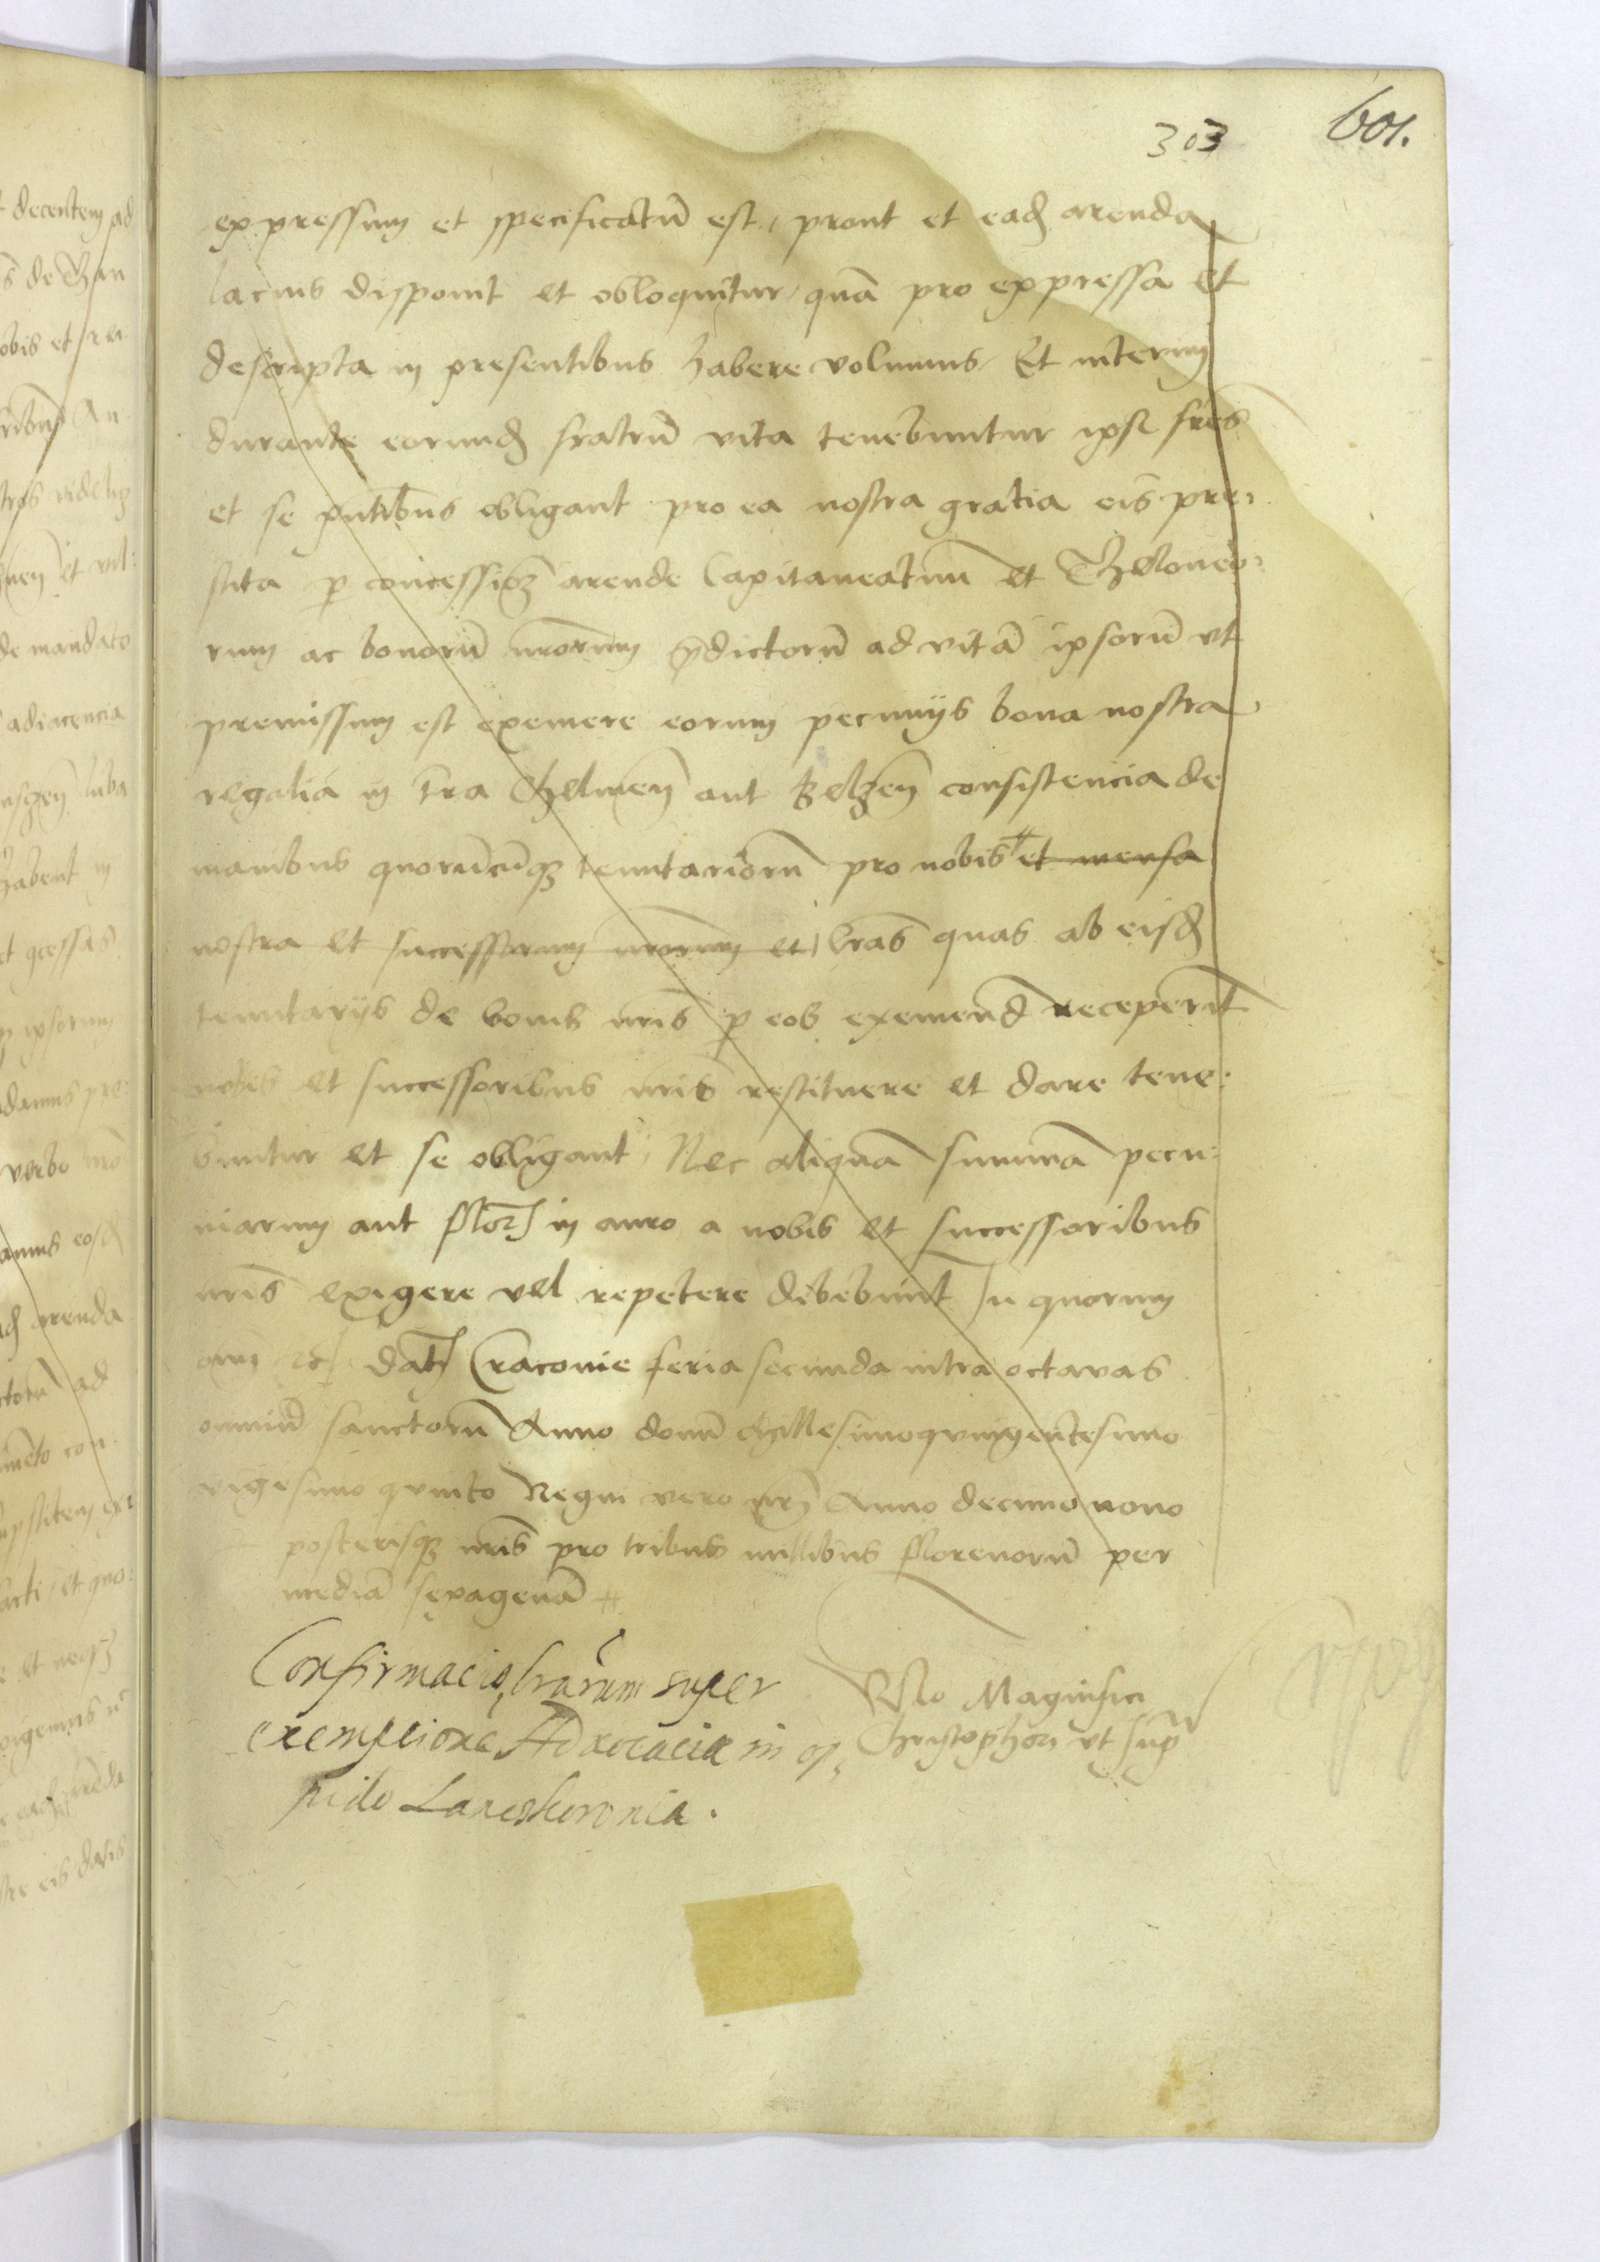 303 601.
expressum et specificatū est, prout et eadē arenda
lacius disponit et obloquitur, quā pro expressa et
descripta in presentibus habere volumus, Et interim
durante eorundē fratrū vita tenebuntur ipsi frēs
et se pn̄tibus obligant pro ea nostra gratia eis pre:
stita p concessionē arende Capitaneatuum et Theloneo:
rum ac bonorū nrorum p̄dictorū ad vitā ipsorū ut
premissum est exemere eorum pecuniis bona nostra
regalia in tr̄a Chelmen̄ aut Belzen̄ consistencia de
manibus quorūcūq tenutariorū pro nobis # et mensa
nostra et successorum nrorum et lr̄as quas ab eisdē
tenutariis de bonis nris̄ p eos exemend̄ receperīt
nobis et successoribus nris̄ restituere et dare tene:
buntur et se obligant, Nec aliquā summā pecu:
niarum aut flor̄ in auro a nobis et successoribus
nris̄ exigere vel repetere debebunt In quorum
om̄ etc̄ dat̄ Cracovie feria secunda intra octavas
omniū sanctorū Anno domī Millesimoquingentesimo
vigesimo quinto Regni vero nr̄i Anno decimo nono
# posterisq nris̄ pro tribus millibus florenorū per
mediā sexagenā #
Confirmacio lrārum super
exempcionē Advocacie in op,
pido Lanczkorunia.
Rlo Magnifici
Christophori ut sup̄